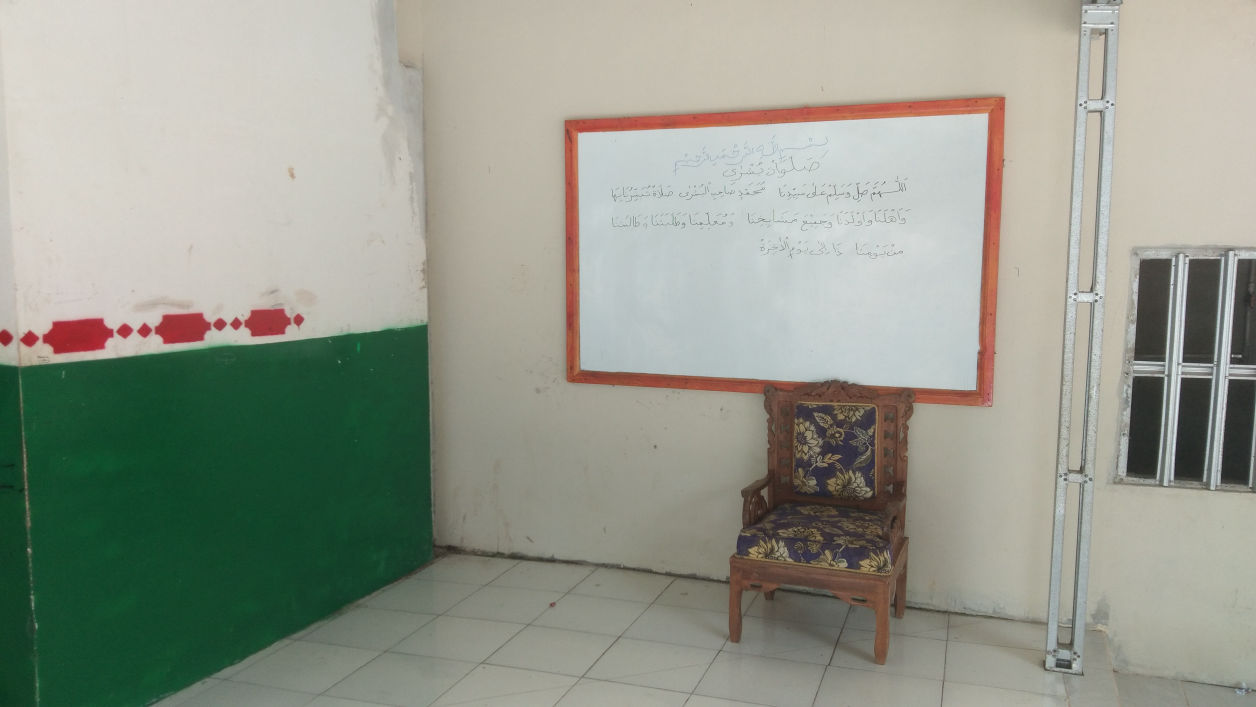 بِسْمِ اللهِ الرَّحْمَنِ الرَّحِيْمِ
صَلَوَاتْ بُشْرَى
اَللّٰهُمَّ صَلِّ وَسَلِّمْ عَلٰى سَيِّدِنَا مُحَمَّدٍ صَاحِبِ الْبُشْرٰى صَلَاةً تُبَشِّرُنَا بِهَا
وَاَهْلَنَا وَاَوْلَدَنَا وَجَمِيْعَ مَشَايِخِنَا وَمُعَلِّمِنَا وَطَلَبَتَنَا وَطَالِبَتَنَا
مِنْ يَوْمِنَا اِلٰى يَوْمِ الْاٰخِرَةِ